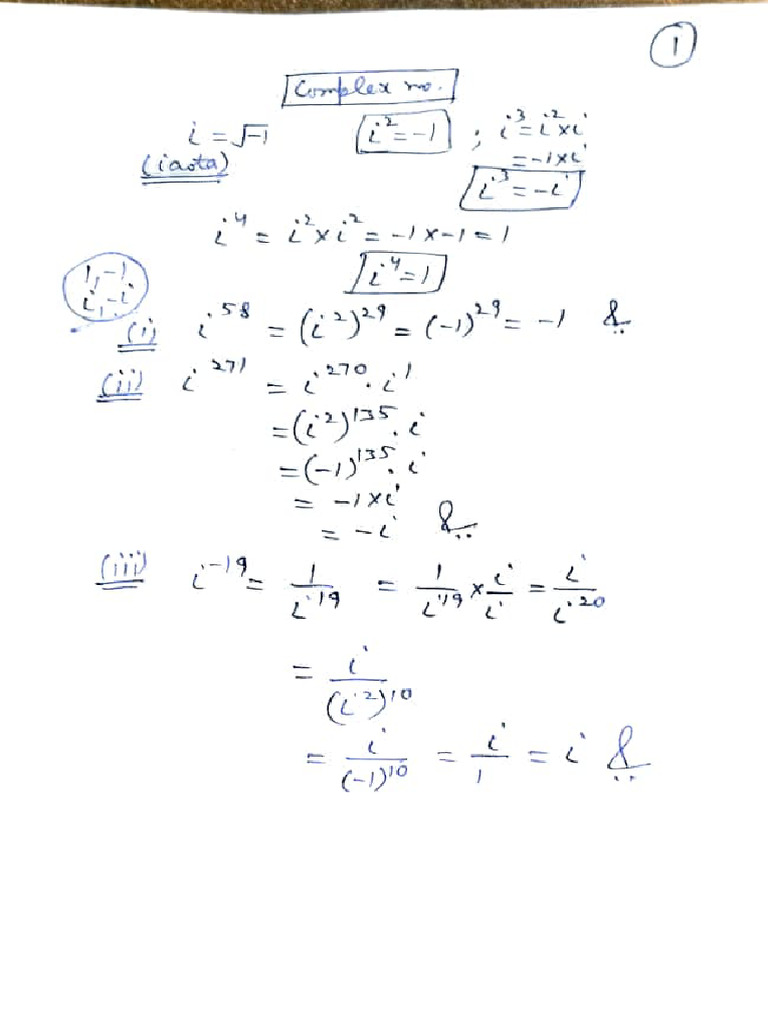 1
Complex no.
i = √-1    i² = -1 ; i³ = i² × i
(iaota)    = -1 × i
i³ = -i
i⁴ = i² × i² = -1 × -1 = 1
1, -1    i⁴ = 1
i, -i
(i) i⁵⁸ = (i²)²⁹ = (-1)²⁹ = -1
(ii) i²⁷¹ = i²⁷⁰ . i¹
= (i²)¹³⁵ . i
= (-1)¹³⁵ . i
= -1 × i
= -i
(iii) i⁻¹⁹ = 1/i¹⁹ = 1/i¹⁹ × i/i = i/i²⁰
= i/(i²)¹⁰
= i/(-1)¹⁰ = i/1 = i